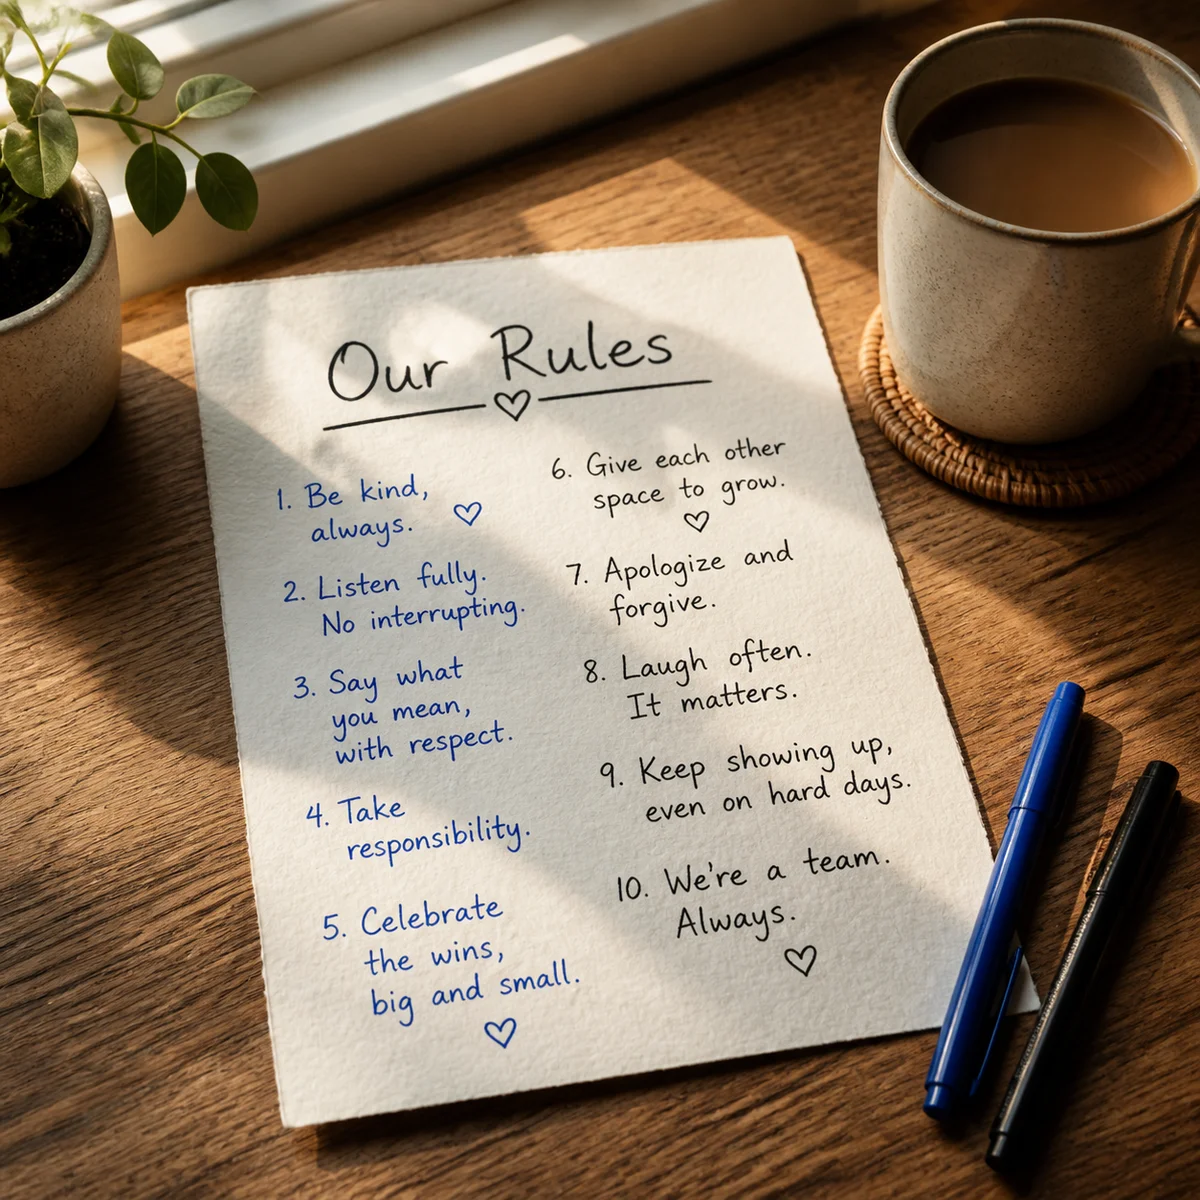 Our Rules
1. Be kind,
always.
2. Listen fully.
No interrupting.
3. Say what
you mean,
with respect.
4. Take
responsibility.
5. Celebrate
the wins,
big and small.
6. Give each other
space to grow.
7. Apologize and
forgive.
8. Laugh often.
It matters.
9. Keep showing up,
even on hard days.
10. We're a team.
Always.